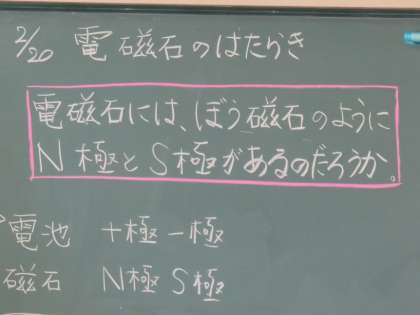 2/20 電磁石のはたらき
電磁石には、ぼう磁石のように
N極とS極があるのだろうか。
電池 +極 -極
磁石 N極 S極